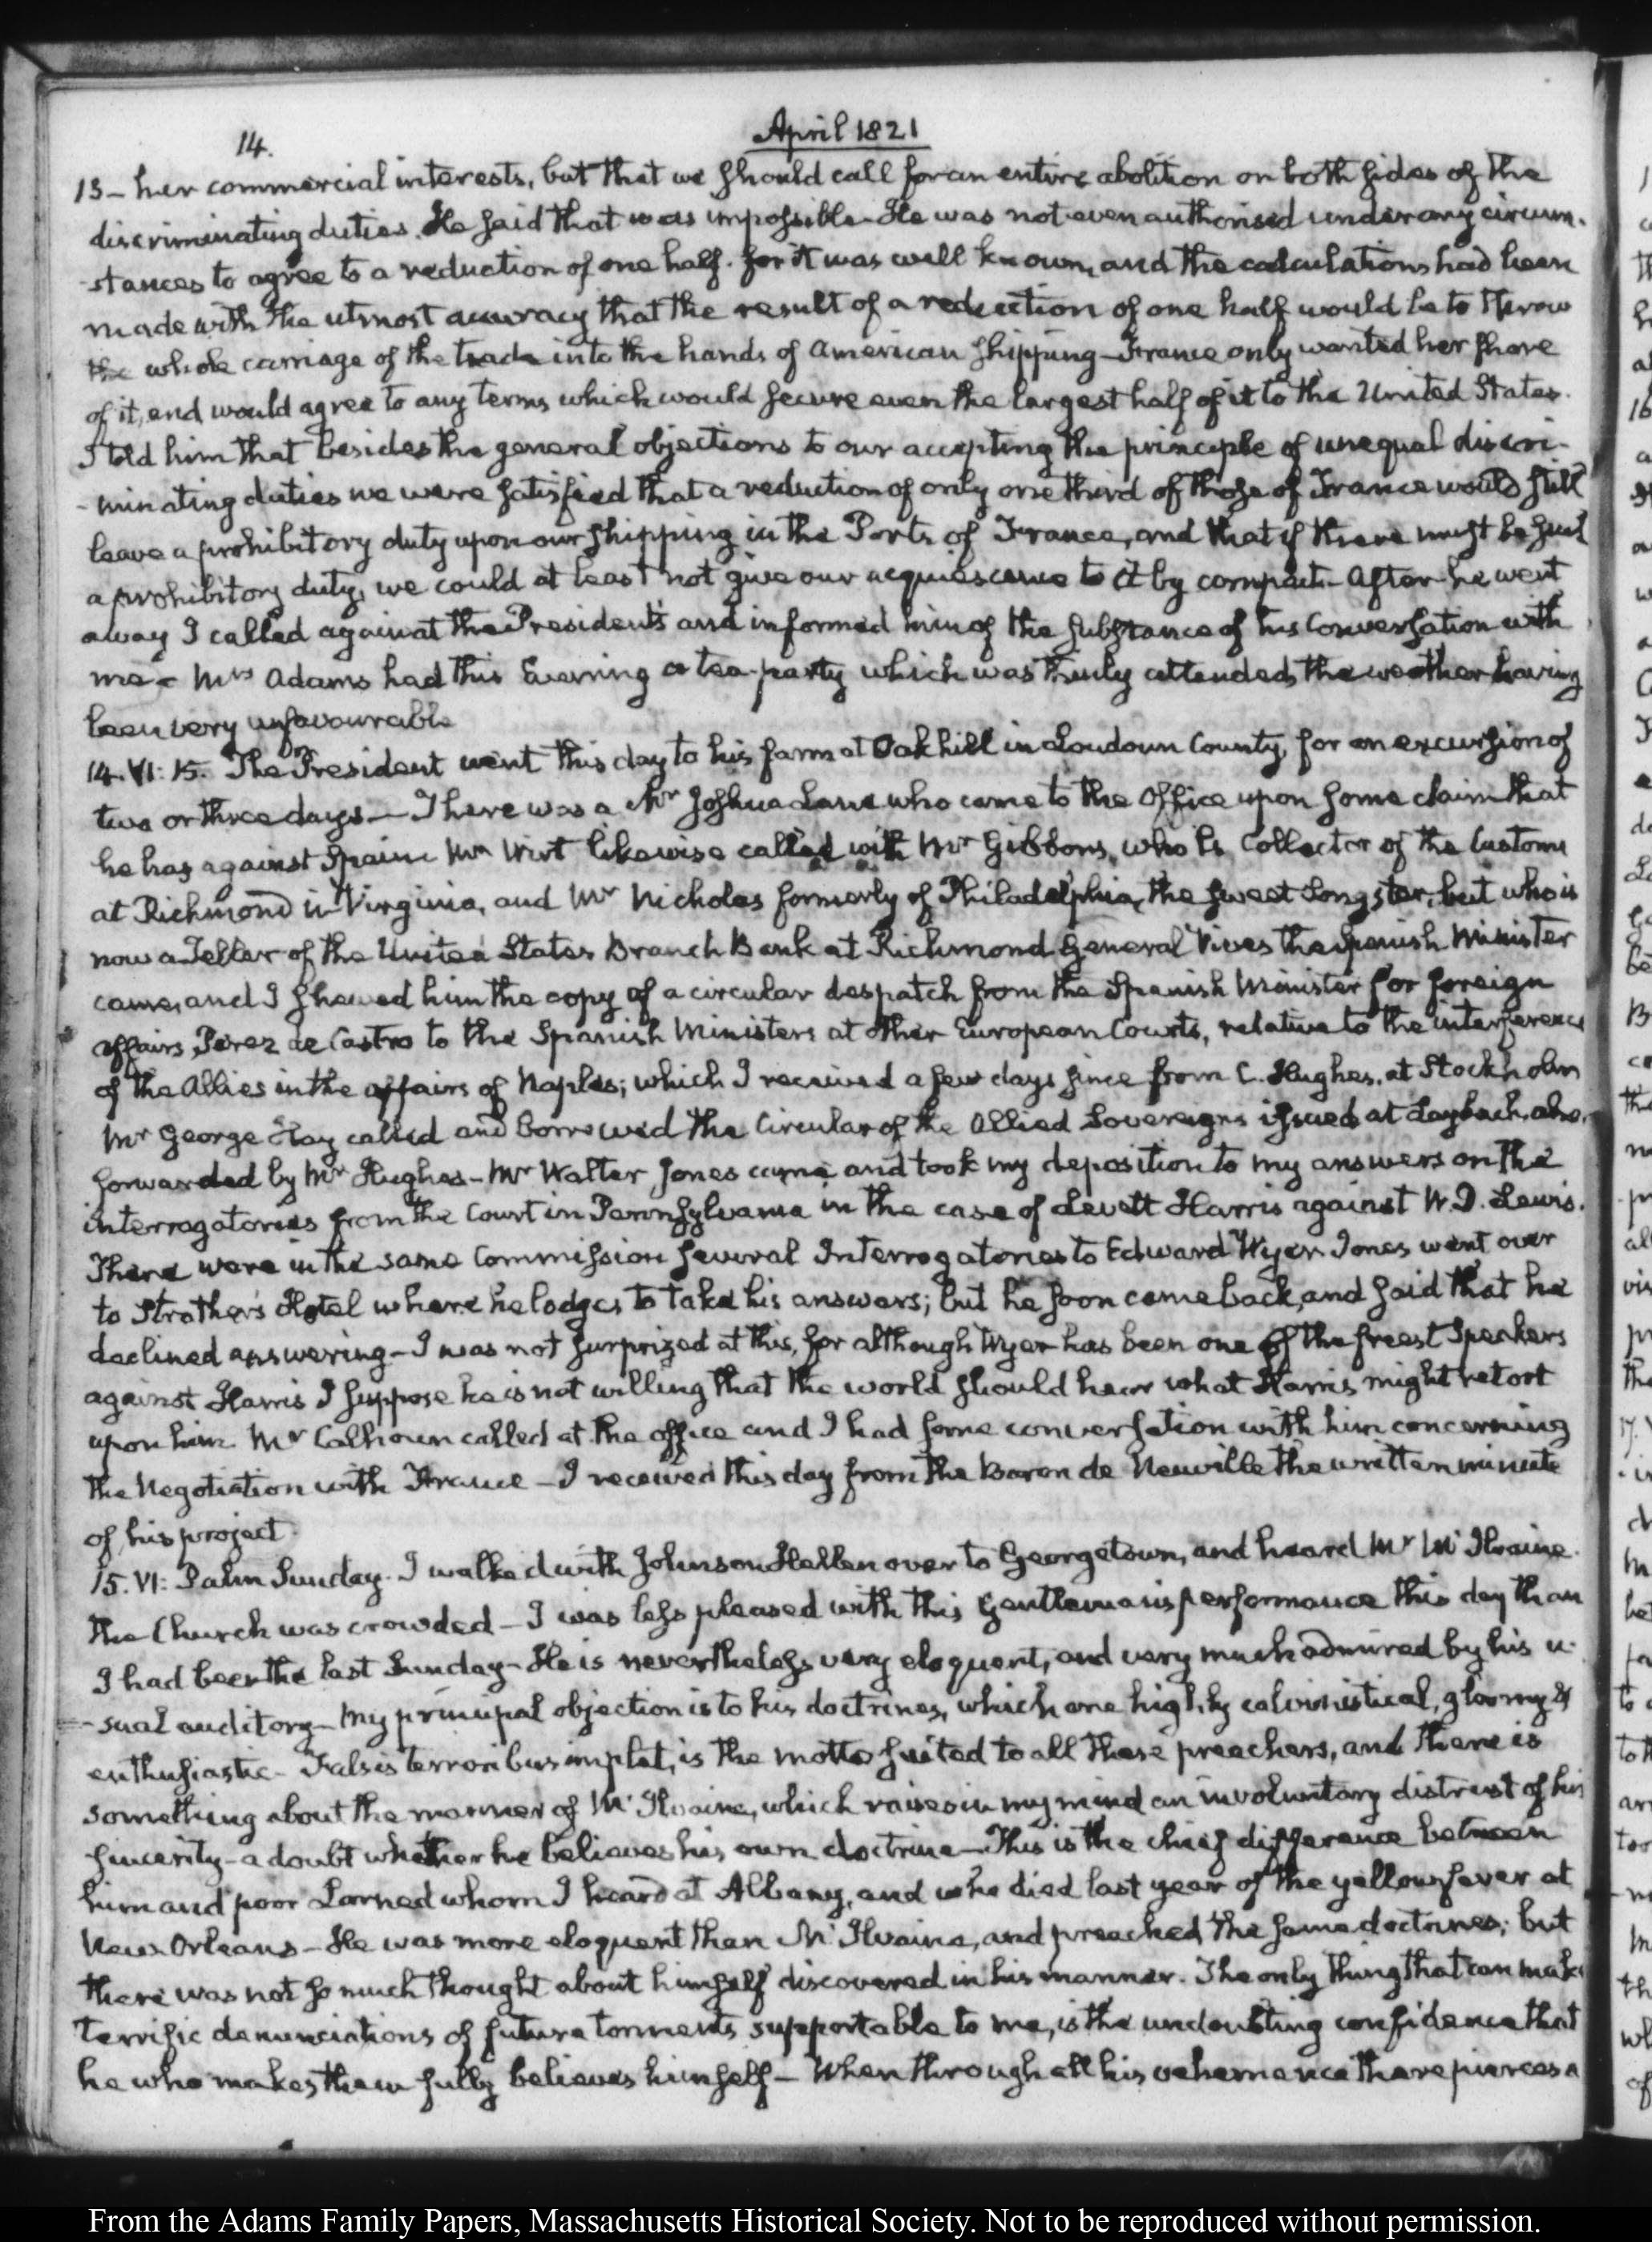 14.
April 1821
13— her commercial interests, but that we should call for an entire abolition on both sides of the
discriminating duties. He said that was impossible. He was not even authorised under any circum-
-stances to agree to a reduction of one half. for it was well known, and the calculations had been
made with the utmost accuracy that the result of a reduction of one half would be to throw
the whole carriage of the trade into the hands of American shipping— France only wanted her share
of it, and would agree to any terms which would secure even the largest half of it to the United States.
I told him that besides the general objections to our accepting the principle of unequal discri-
-minating duties we were satisfied that a reduction of only one third of those of France would still
leave a prohibitory duty upon our shipping in the Ports of France, and that if there must be such
a prohibitory duty, we could at least not give our acquiescence to it by compact— After he went
away I called again at the President's and informed him of the substance of his Conversation with
me— Mrs Adams had this Evening a tea-party which was thinly attended, the weather having
been very unfavourable
14. VI: 15. The President went this day to his farm at Oakhill in Loudoun County, for an excursion of
two or three days— There was a Mr Joshua Lane who came to the Office upon some claim that
he has against Spain Mr Wirt likewise called with Mr Gibbons, who is Collector of the Customs
at Richmond in Virginia, and Mr Nicholas formerly of Philadelphia, the sweet Songster, but who is
now a Teller of the United States Branch Bank at Richmond General Vives the Spanish Minister
came, and I shewed him the copy of a circular despatch from the Spanish Minister for foreign
affairs, Perez de Castro to the Spanish Ministers at other European Courts, relative to the interference
of the Allies in the affairs of Naples; which I received a few days since from C. Hughes, at Stockholm
Mr George Hay called and borrowed the Circular of the Allied Sovereigns issued at Laybach, also,
forwarded by Mr Hughes— Mr Walter Jones came and took my deposition to my answers on the
interrogatories from the Court in Pennsylvania in the case of Levett Harris against W. D. Lewis.
There were in the same Commission several Interrogatories to Edward Wyer. Jones went over
to Strother's Hotel where he lodges to take his answers; but he soon came back, and said that he
declined answering— I was not surprized at this, for although Wyer has been one of the freest Speakers
against Harris I suppose he is not willing that the world should hear what Harris might retort
upon him. Mr Calhoun called at the office and I had some conversation with him concerning
the Negotiation with France— I received this day from the Baron de Neuville the written minute
of his project.
15. VI: Palm Sunday. I walked with Johnson Hellen over to Georgetown, and heard Mr Mc Ilvaine.
the Church was crowded— I was less pleased with this Gentleman's performance this day than
I had been the last Sunday— He is nevertheless very eloquent, and very much admired by his u-
-sual auditory— My principal objection is to his doctrines, which are highly calvinistical, gloomy &
enthusiastic— Falsis terroribus implet, is the motto suited to all these preachers, and there is
something about the manner of Mc Ilvaine, which raises in my mind an involuntary distrust of his
sincerity— a doubt whether he believes his own doctrine— This is the chief difference between
him and poor Larned whom I heard at Albany, and who died last year of the yellow fever at
New Orleans— He was more eloquent than Mc Ilvaine, and preached the same doctrines; but
there was not so much thought about himself discovered in his manner. The only thing that can make
terrific denunciations of future torments supportable to me, is the undoubting confidence that
he who makes them fully believes himself— When through all his vehemence there pierces a
From the Adams Family Papers, Massachusetts Historical Society. Not to be reproduced without permission.